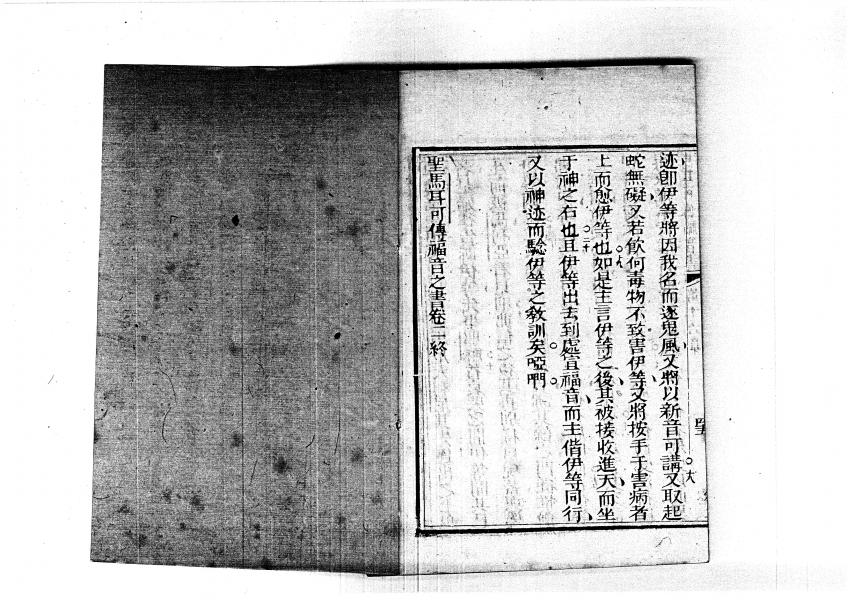 迹卽伊等將因我名而逐鬼風又將以新音可講又取起
蛇無礙又若飲何毒物不致害伊等又將按手于害病者
上而愈伊等也如是主言伊等之後其被接收進天而坐
于神之右也且伊等出去到處宣福音而主偕伊等同行
又以神迹而驗伊等之敎訓矣啞們
聖馬耳可傳福音之書卷二終